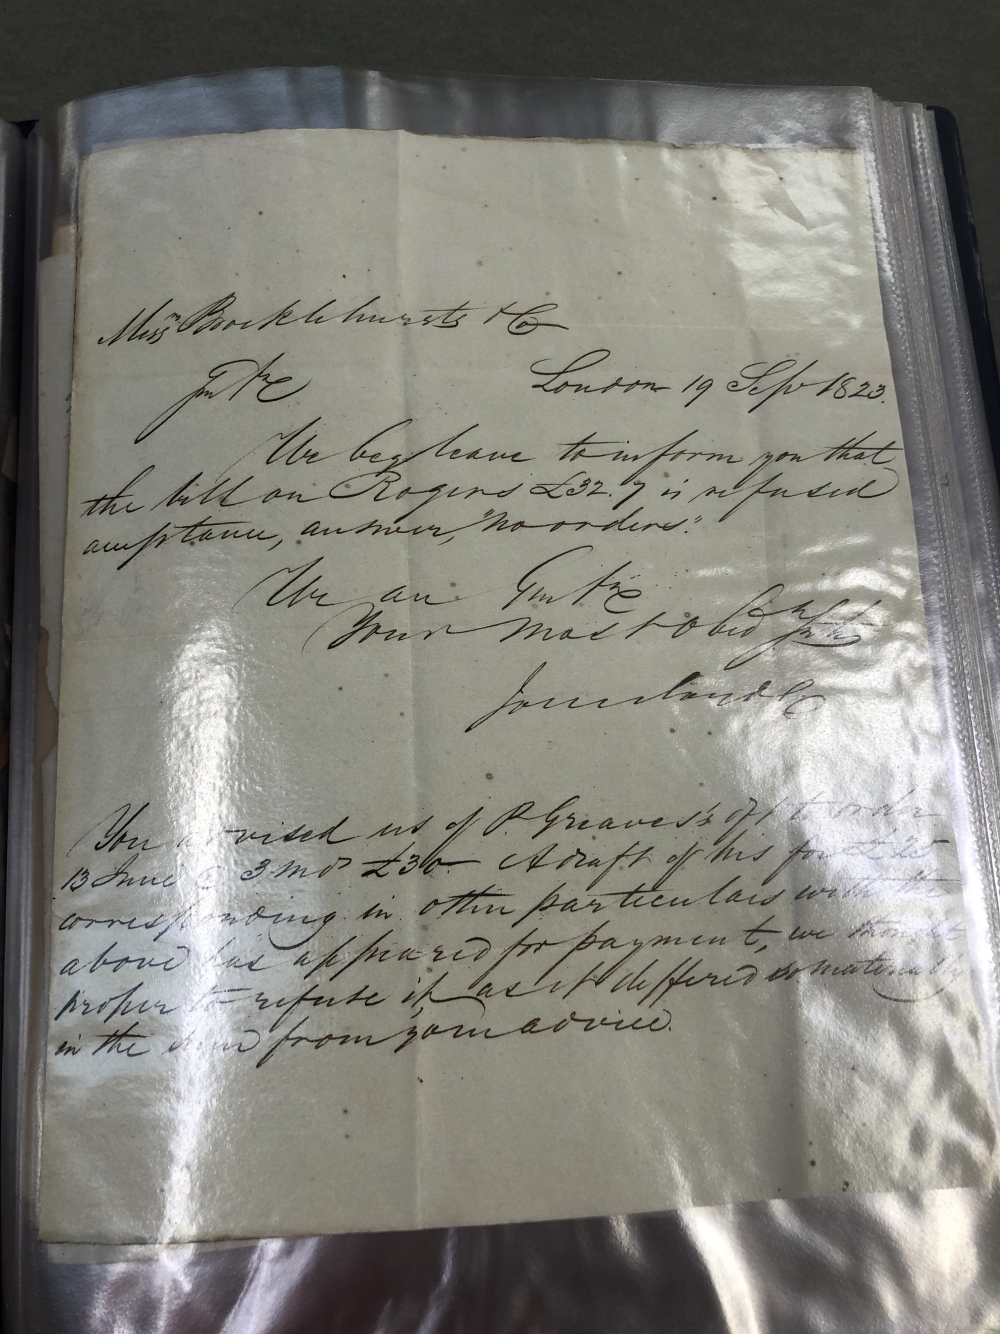 Messrs Brocklehursts & Co
London 19 Sepr 1823.
Gentn
We beg leave to inform you that
the bill on Rogers £32.7 is refused
acceptance, answer, "no orders."
We are Gentn
Your most Obedt Servts
Jones Loyd & Co
You advised us of P. Greaves's dft to order
13 June @ 3 mos £30 A draft of his for £25
corresponding in other particulars with the
above has appeared for payment, we thought
proper to refuse it, as it differed so materially
in the sum from your advice.